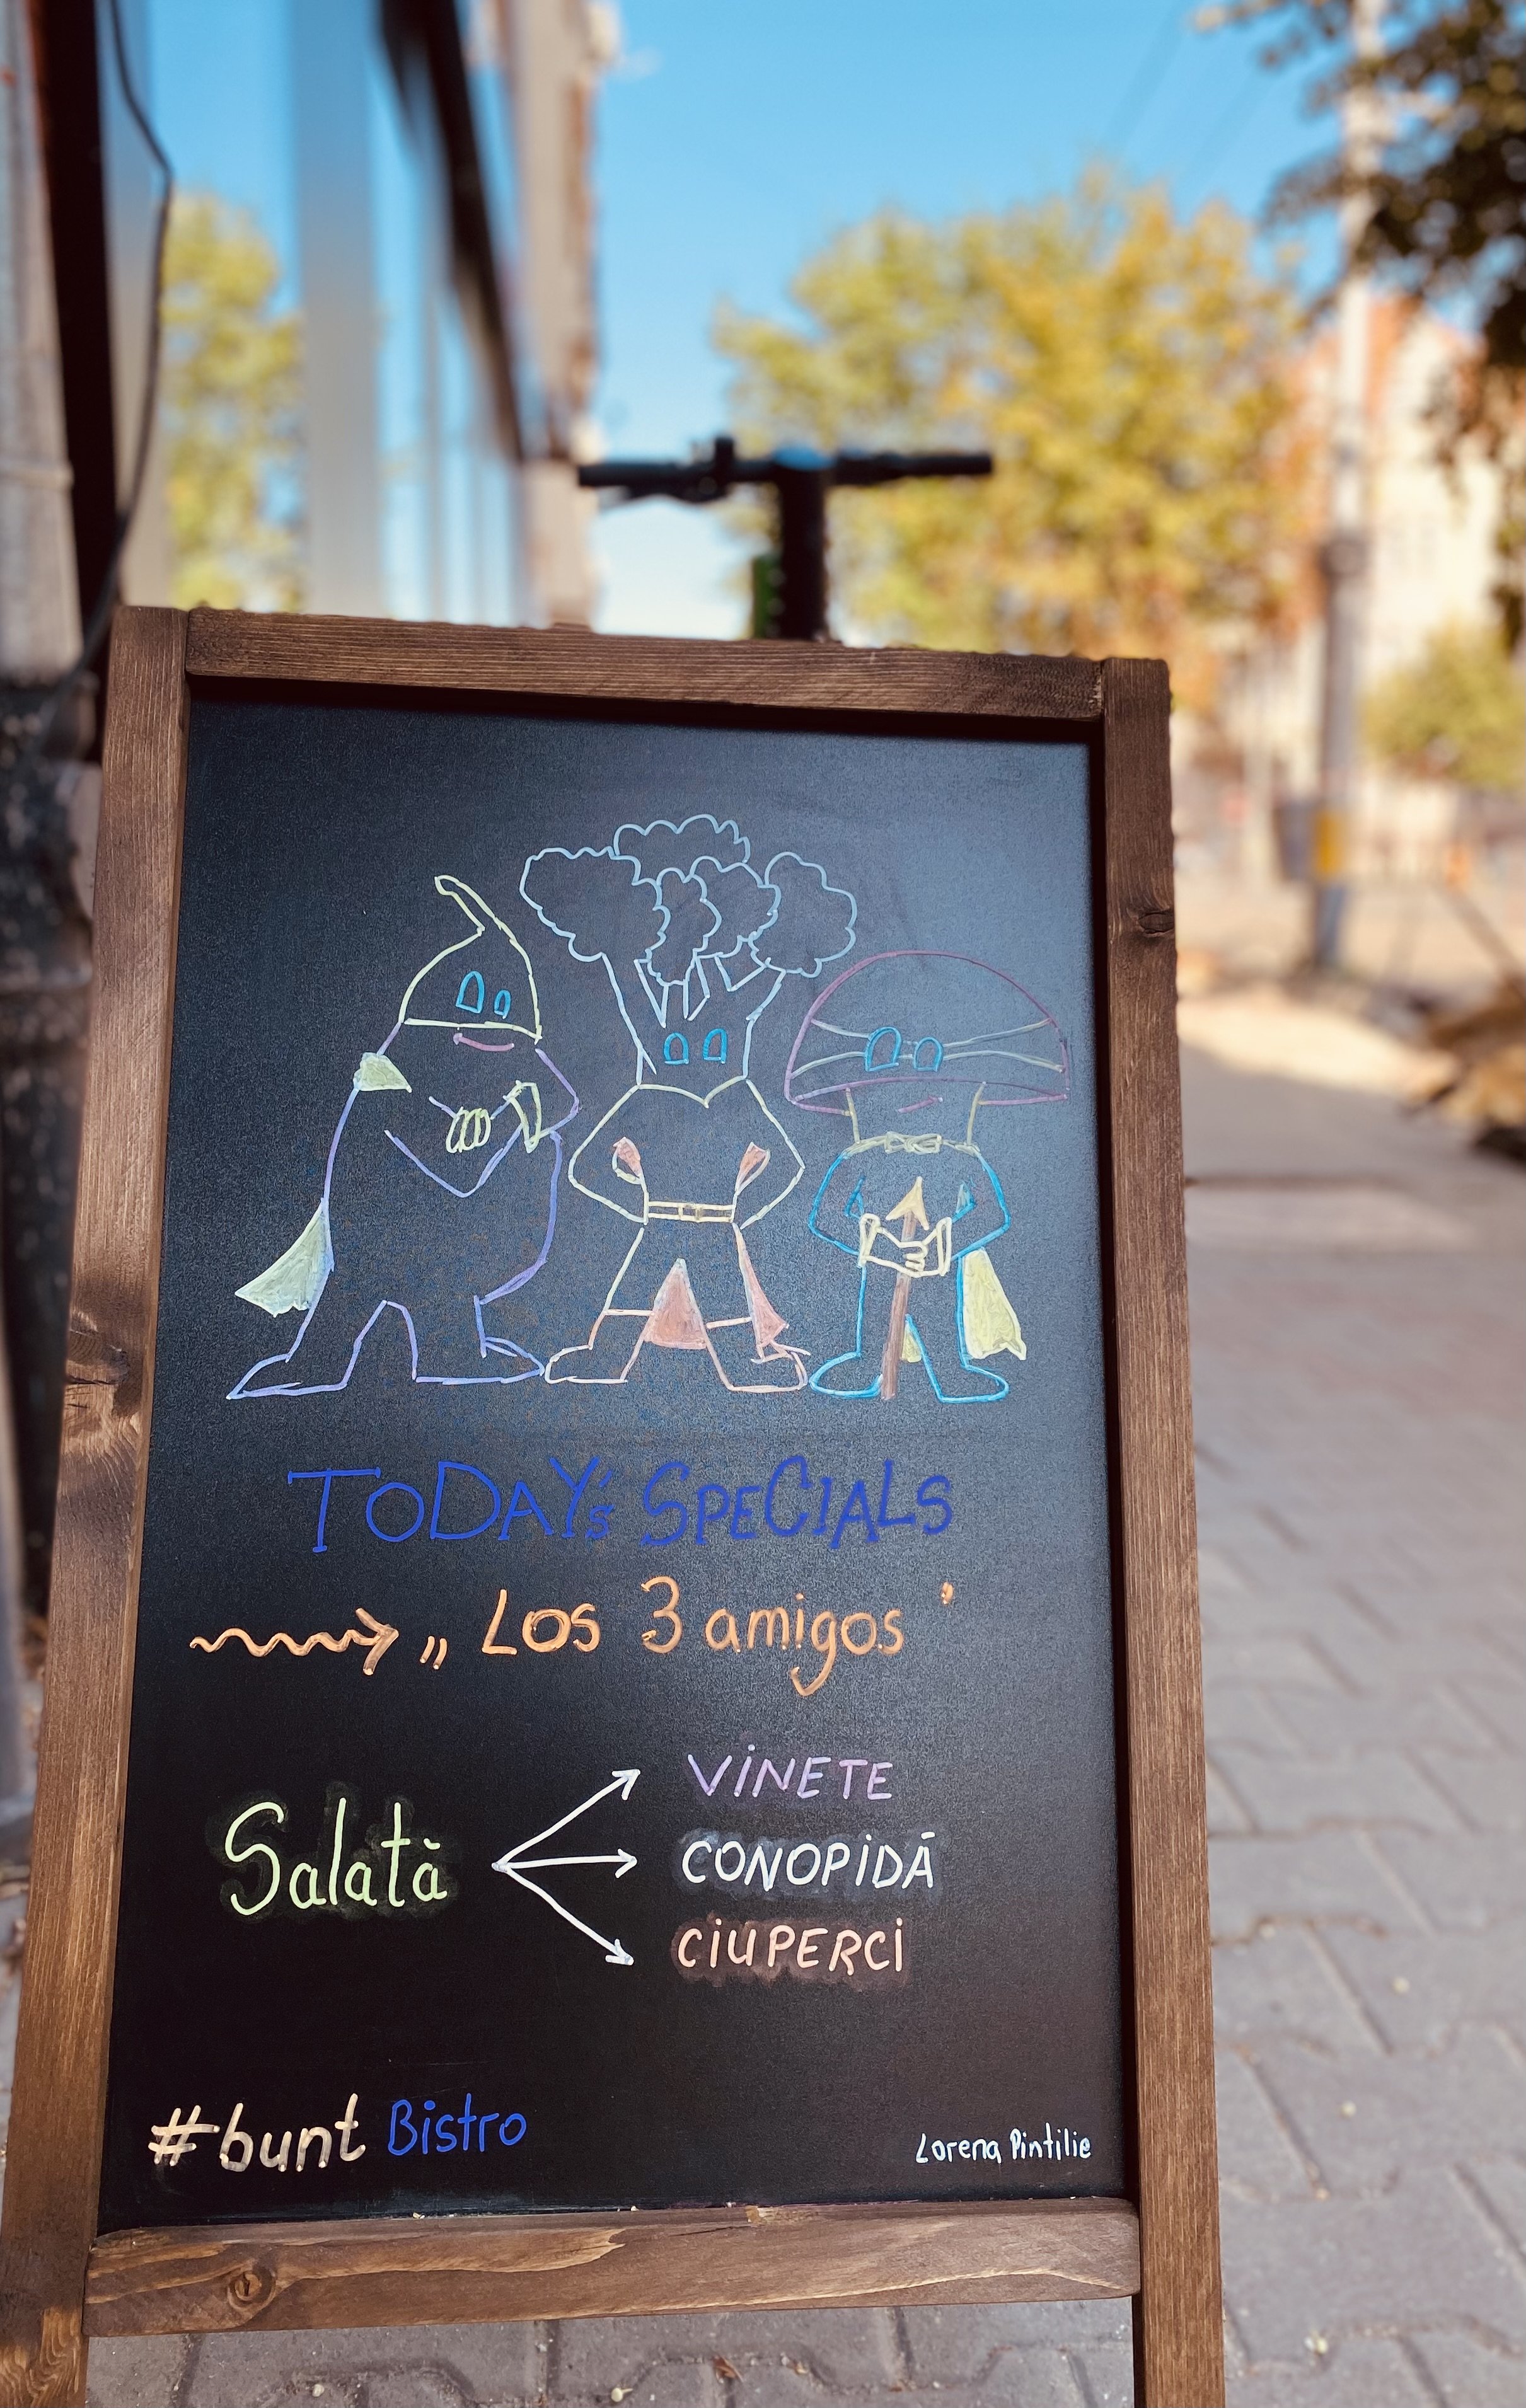 TODAY's SPECIALS
„Los 3 amigos'
Salată
VINETE
CONOPIDĂ
CIUPERCI
#bunt Bistro
Lorena Pintilie